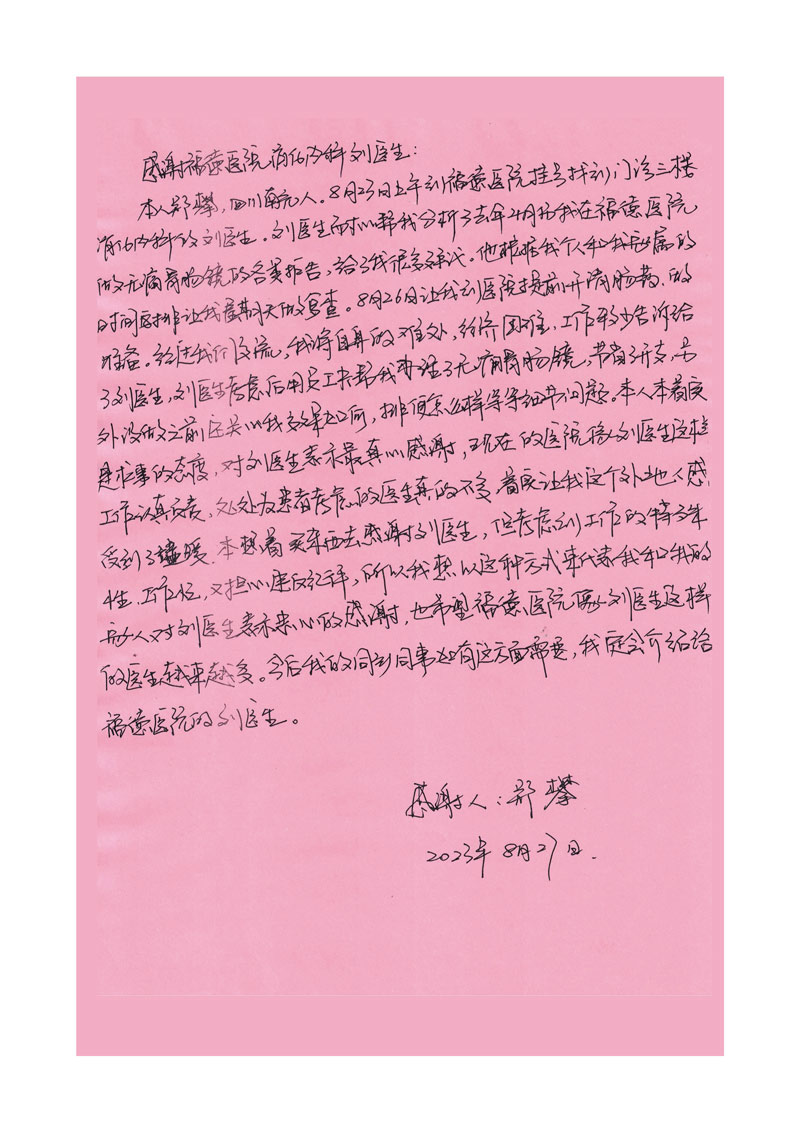 感谢福德医院消化内科刘医生：
本人郑攀，四川南充人。8月23日上午到福德医院挂号找到门诊三楼
消化内科的刘医生。刘医生耐心帮我分析了去年4月于我在福德医院
做无痛胃肠镜的各类报告，给了我很多建议。他根据我个人和我家属的
时间安排让我星期天做复查。8月26日让我到医院提前开清肠药、做
准备。经过我们交流，我将自身的难处，经济困难、工作较少告诉给
了刘医生，刘医生考虑后用员工夹帮我办理了无痛胃肠镜，节省了开支，另
外没做之前还关心我效果如何，排便怎么样等等细节问题。本人本着实
是求事的态度，对刘医生表示最真心感谢，现在的医院像刘医生这样
工作认真负责，处处为患者考虑的医生真的不多，着实让我这个外地人感
受到了温暖。本想着买东西去感谢刘医生，但考虑到工作的特殊
性、工作忙，又担心违反纪律，所以我想以这种方式来代表我和我的
家人对刘医生表示衷心的感谢，也希望福德医院像刘医生这样
的医生越来越多。今后我的同乡同事如有这方面需要，我定会介绍给
福德医院的刘医生。
感谢人：郑攀
2023年8月27日.